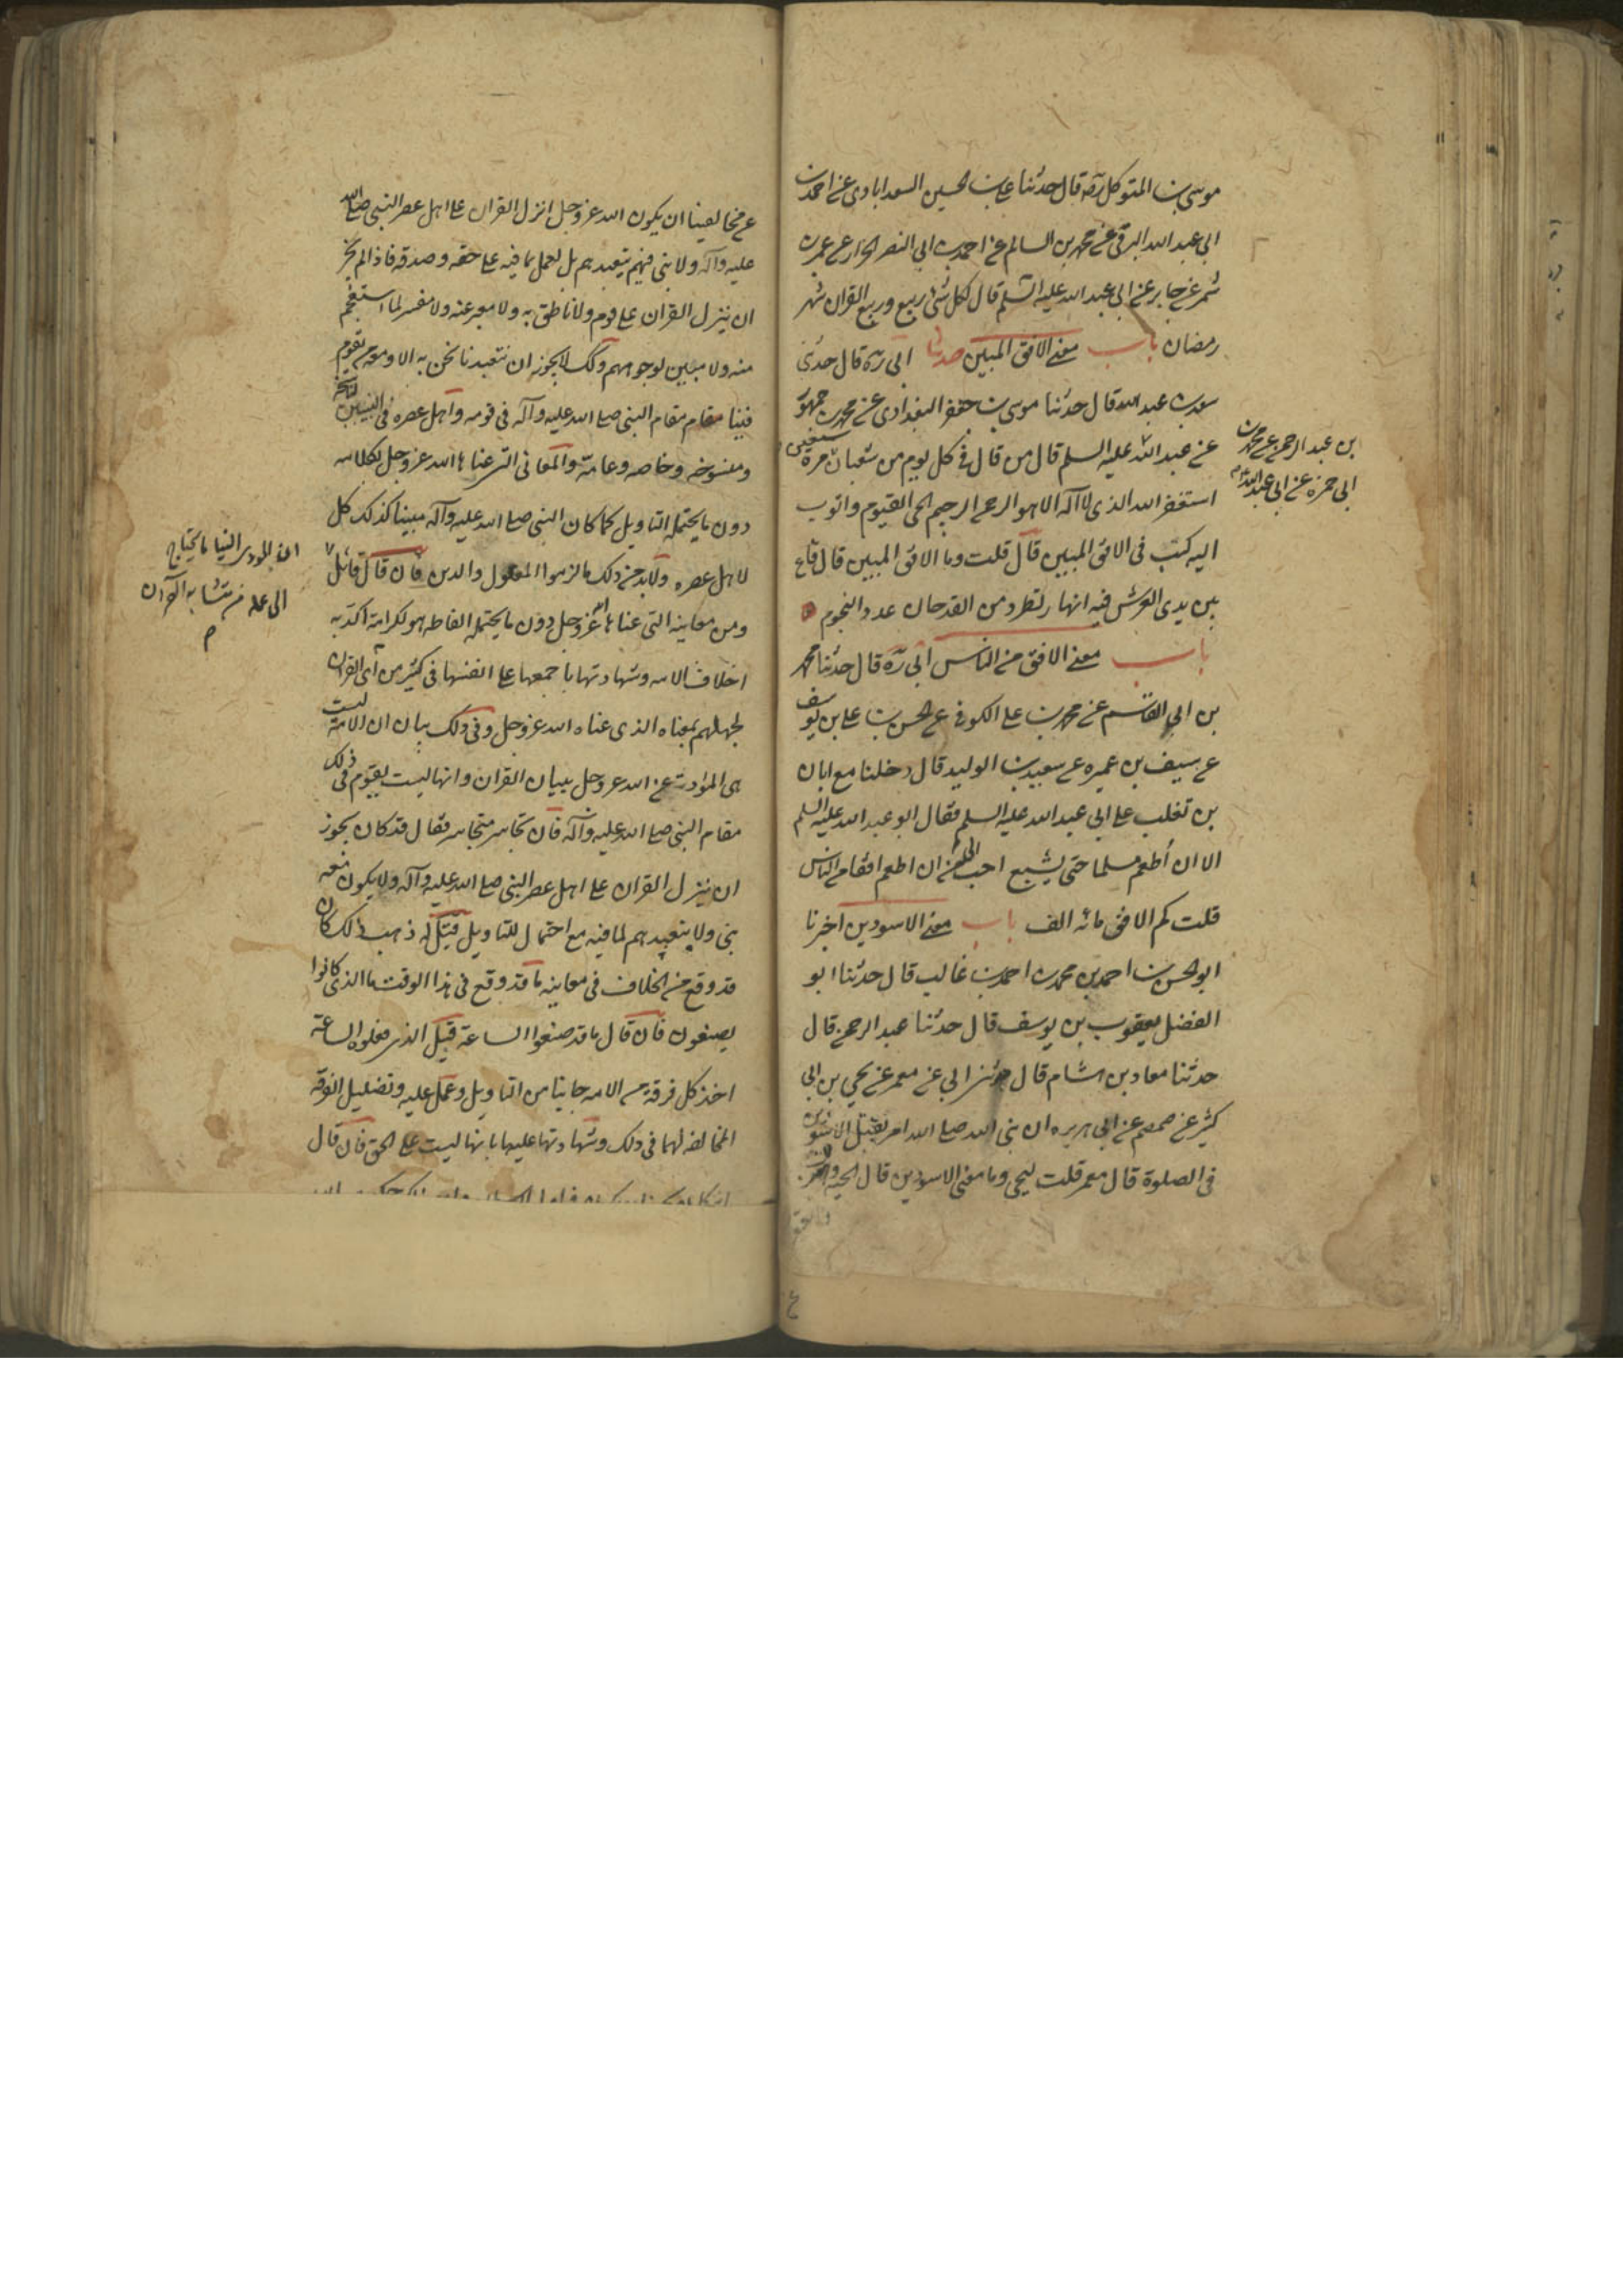 موسى بن المتوكل ره قال حدثنا على بن الحسين السعدابادى عن احمد بن
ابى عبد الله البرقى عن محمد بن السالم عن احمد بن ابى النصر الخزاز عن عمرو بن
شمر عن جابر عن ابى عبد الله عليه السلم قال لكل شئ ربيع وربيع القران شهر
رمضان باب معنى الافق المبين حدثنا ابى ره قال حدثنى
سعد بن عبد الله قال حدثنا موسى بن جعفر البغدادى عن محمد بن جمهور
بن عبد الرحمن عن محمد بن
ابى حمزه عن ابى عبد الله
عن عبد الله عليه السلم قال من قال فى كل يوم من شعبان سبعين مرة
استغفر الله الذى لا اله الا هو الرحمن الرحيم الحى القيوم واتوب
اليه كتب فى الافق المبين قال قلت وما الافق المبين قال قاع
بين يدى العرش فيه انهار تطرد من القدحان عدد النجوم
باب معنى الافق من الناس ابى ره قال حدثنا محمد
بن ابى القاسم عن محمد بن على الكوفى عن الحسن بن على بن يوسف
عن سيف بن عميره عن سعيد بن الوليد قال دخلنا مع ابان
بن تغلب على ابى عبد الله عليه السلم فقال ابو عبد الله عليه السلم
الا ان أطعم مسلما حتى يشبع احب الى من ان اطعم افقا من الناس
قلت كم الافق مائه الف باب معنى الاسودين اخبرنا
ابو الحسن احمد بن محمد بن احمد بن غالب قال حدثنا ابو
الفضل يعقوب بن يوسف قال حدثنا عبد الرحمن قال
حدثنا معاذ بن هشام قال حدثنى ابى عن معمر عن يحيى بن ابى
كثير عن ضمضم عن ابى هريره ان نبى الله صلى الله امر بقتل الاسودين
فى الصلوة قال معمر قلت ليحيى وما معنى الاسودين قال الحيه والعقرب
عن مخالفينا ان يكون الله عز وجل انزل القران على اهل عصر النبى صلى الله
عليه وآله ولا نبى فيهم يتعبدهم بل لعمل بما فيه على حقه وصدقه فاذا لم يجز
ان ينزل القران على قوم ولا ناطق به ولا معبر عنه ولا مفسر لما استعجم
منه ولا مبين لوجوههم وكذلك لا يجوز ان نتعبدنا نحن به الا ومعه من يقوم
فينا مقام النبى صلى الله عليه وآله فى قومه واهل عصره فى التبيين لناسخه
ومنسوخه وخاصه وعامة والمعانى التى عناها الله عز وجل بكلامه
دون ما يحتمله التاويل كما كان النبى صلى الله عليه وآله مبينا كذلك كل
لاهل عصره ولابد من ذلك ما لزموا العقول والدين فان قال قائل
ان المودى الينا ما نحتاج
الى علمه من متشابه القرآن
ومن معانيه التى عناها الله عز وجل دون ما يحتمله الفاظه هو لكرامة اكذبه
اختلاف الامه وشهادتها باجمعها على انفسها فى كثير من آى القران
لجهلهم بمعناه الذى عناه الله عز وجل وفى ذلك بيان ان الامة ليست
هى الموادت عن الله عز وجل ببيان القران وانها ليست يقوم فى ذلك
مقام النبى صلى الله عليه وآله فان تجاسر متجاسر فقال قد كان يجوز
ان ينزل القران على اهل عصر النبى صلى الله عليه وآله ولا يكون معه
نبى ولا يتعبدهم لما فيه مع احتمال للتاويل قيل له ذهب ذلك كان
قد وقع من الخلاف فى معانيه ما قد وقع فى هذا الوقت ما الذى كانوا
يصنعون فان قال ما قد صنعوا الساعة قيل الذى فعلوه الساعة
اخذ كل فرقة من الامه جانبا من التاويل وعمل عليه وتضليل الفرقة
المخالفه لهما فى ذلك وشهادتها عليها بانها ليست على الحق فان قال